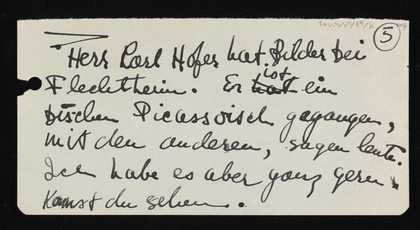 5
Herr Carl Hofer hat Bilder bei
Flechtheim. Er hat ist ein
bischen Picassoisch gegangen,
mit den anderen, sagen leute.
Ich habe es aber ganz gern
Kannst du sehen.